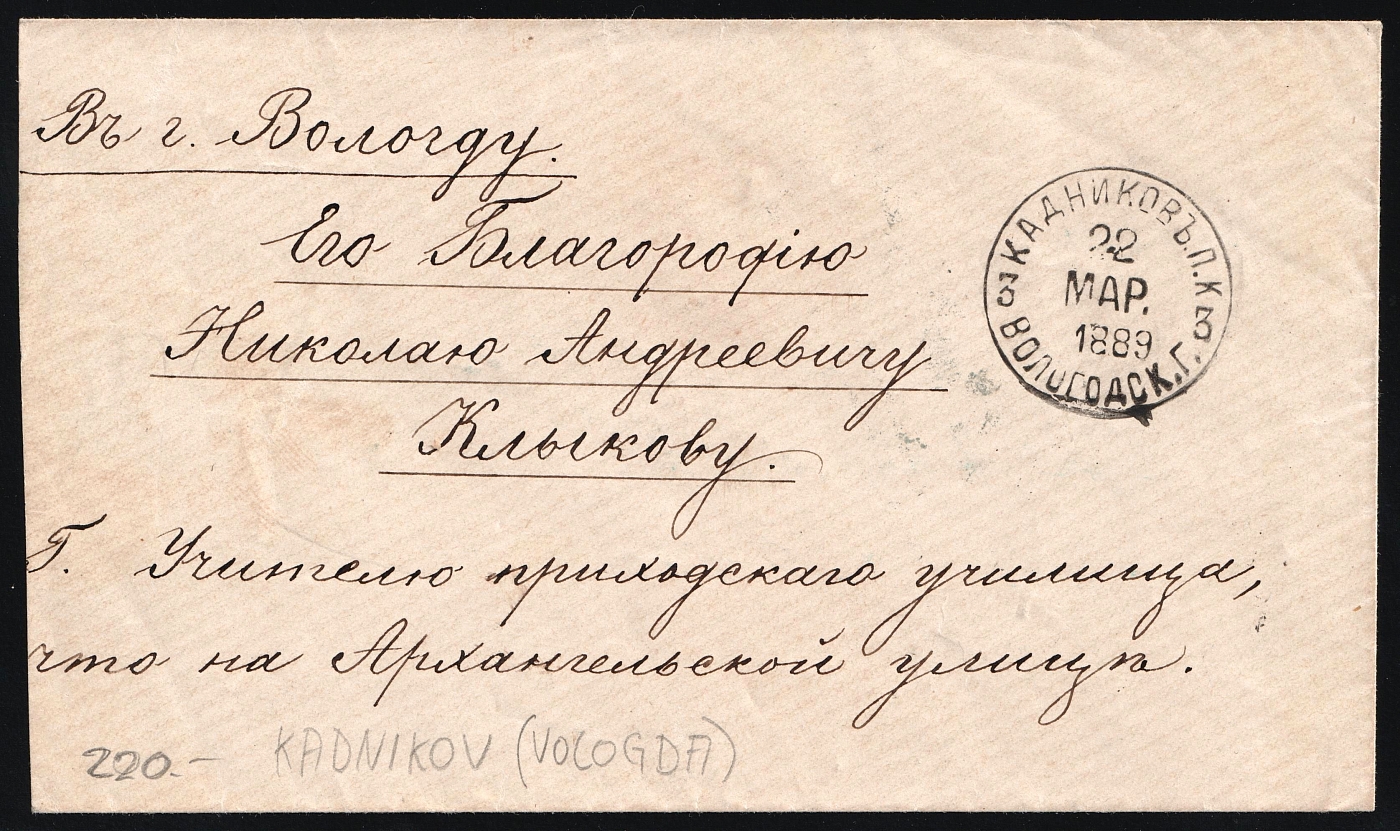 Въ г. Вологду.
Его Благородію
Николаю Андреевичу
Клыкову.
Г. Учителю приходскаго училища,
что на Архангельской улицѣ.
КАДНИКОВЪ.П.К
3 3
22
МАР.
1889
ВОЛОГОДСК.Г.
220.- KADNIKOV (VOLOGDA)